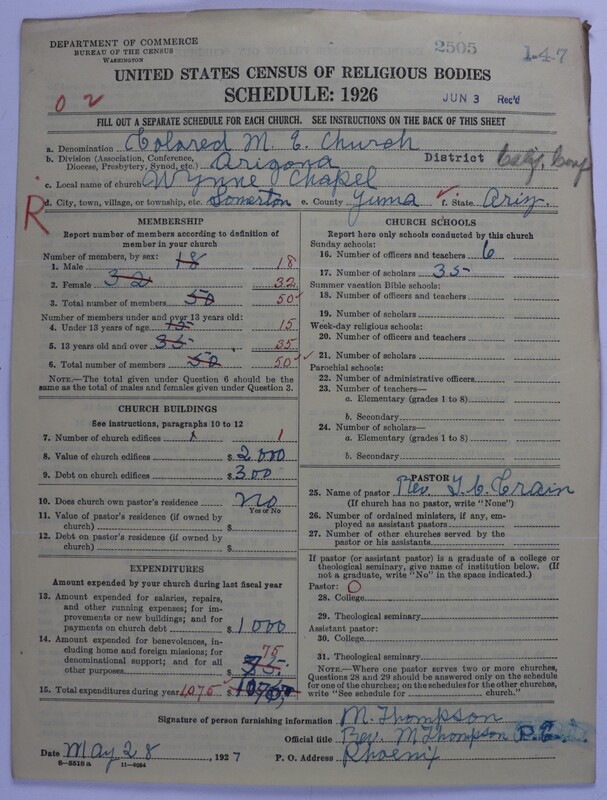 DEPARTMENT OF COMMERCE
BUREAU OF THE CENSUS
WASHINGTON
2505
1-4-7
UNITED STATES CENSUS OF RELIGIOUS BODIES
SCHEDULE: 1926
JUN 3 Rec'd
0 2
FILL OUT A SEPARATE SCHEDULE FOR EACH CHURCH. SEE INSTRUCTIONS ON THE BACK OF THIS SHEET
a. Denomination Colored M. E. Church
b. Division (Association, Conference, Diocese, Presbytery, Synod, etc.) Arizona District
c. Local name of church Wynne Chapel
R
d. City, town, village, or township, etc. Somerton e. County Yuma f. State Ariz.
MEMBERSHIP
Report number of members according to definition of
member in your church
Number of members, by sex:
1. Male 18 18
2. Female 32 32
3. Total number of members 50 50
Number of members under and over 13 years old:
4. Under 13 years of age 15 15
5. 13 years old and over 35 35
6. Total number of members 50 50
NOTE.—The total given under Question 6 should be
the same as the total of males and females given under Question 3.
CHURCH BUILDINGS
See instructions, paragraphs 10 to 12
7. Number of church edifices 1 1
8. Value of church edifices $ 2000
9. Debt on church edifices $ 300
10. Does church own pastor's residence No
Yes or No
11. Value of pastor's residence (if owned by
church) $
12. Debt on pastor's residence (if owned by
church) $
EXPENDITURES
Amount expended by your church during last fiscal year
13. Amount expended for salaries, repairs,
and other running expenses; for im-
provements or new buildings; and for
payments on church debt $ 1000
14. Amount expended for benevolences, in-
cluding home and foreign missions; for
denominational support; and for all
other purposes $ 75
15. Total expenditures during year 1075 $
CHURCH SCHOOLS
Report here only schools conducted by this church
Sunday schools:
16. Number of officers and teachers 6
17. Number of scholars 35
Summer vacation Bible schools:
18. Number of officers and teachers
19. Number of scholars
Week-day religious schools:
20. Number of officers and teachers
21. Number of scholars
Parochial schools:
22. Number of administrative officers
23. Number of teachers—
a. Elementary (grades 1 to 8)
b. Secondary
24. Number of scholars—
a. Elementary (grades 1 to 8)
b. Secondary
PASTOR
25. Name of pastor Rev. T. C. Crain
(If church has no pastor, write "None")
26. Number of ordained ministers, if any, em-
ployed as assistant pastors
27. Number of other churches served by the
pastor or his assistants
If pastor (or assistant pastor) is a graduate of a college or
theological seminary, give name of institution below. (If
not a graduate, write "No" in the space indicated.)
Pastor: 0
28. College
29. Theological seminary
Assistant pastor:
30. College
31. Theological seminary
NOTE.—Where one pastor serves two or more churches,
Questions 28 and 29 should be answered only on the schedule
for one of the churches; on the schedules for the other churches,
write "See schedule for church."
Signature of person furnishing information M. Thompson
Official title Rev. M Thompson P. E.
Date May 28, 1927 P. O. Address Phoenix
8-5518 a